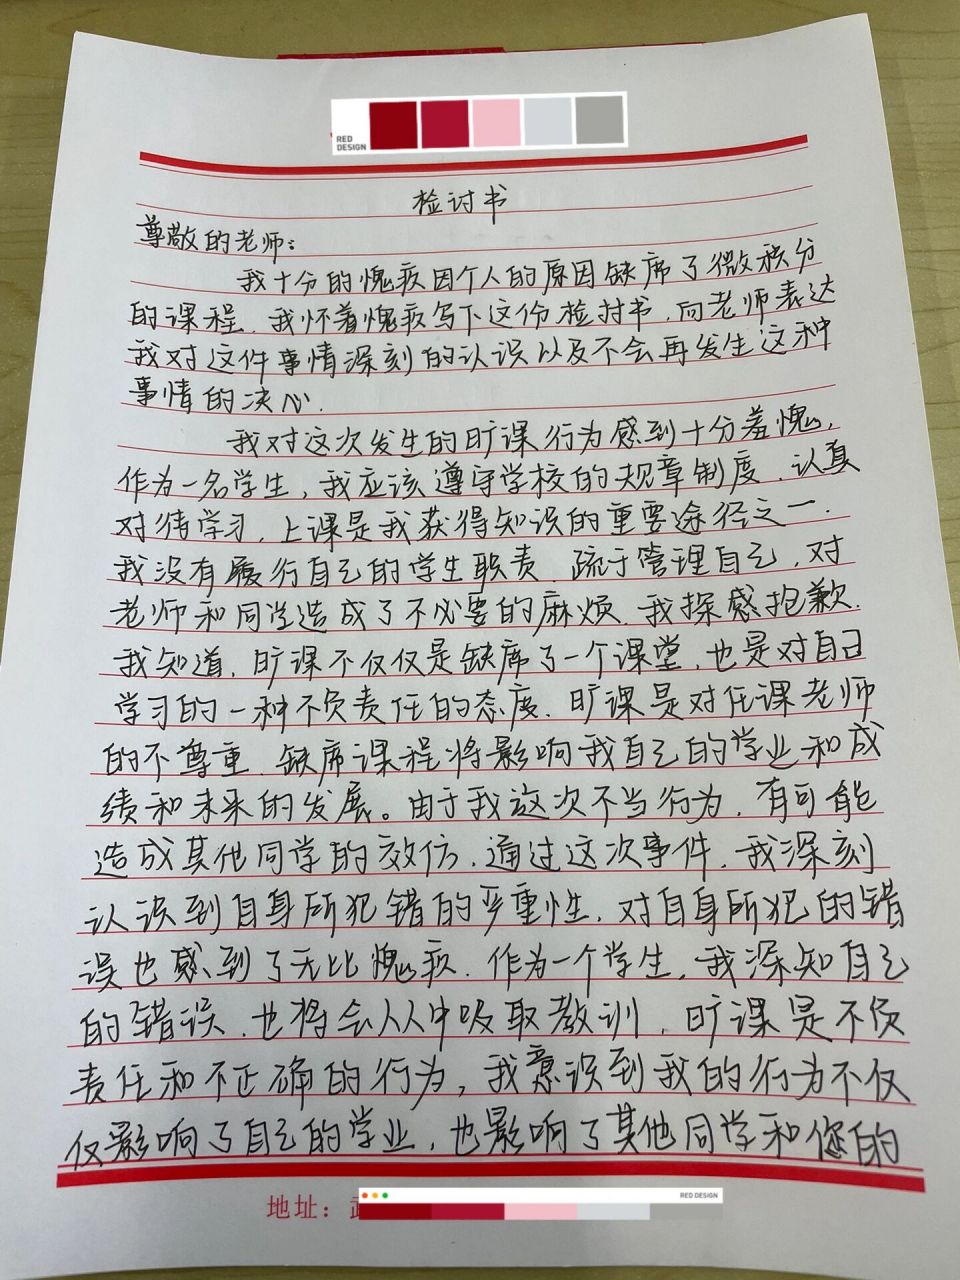 RED
DESIGN
检讨书
尊敬的老师:
我十分的愧疚因个人的原因缺席了微积分
的课程.我怀着愧疚写下这份检讨书,向老师表达
我对这件事情深刻的认识以及不会再发生这种
事情的决心.
我对这次发生的旷课行为感到十分羞愧,
作为一名学生,我应该遵守学校的规章制度.认真
对待学习,上课是我获得知识的重要途径之一.
我没有履行自己的学生职责.疏于管理自己,对
老师和同学造成了不必要的麻烦.我深感抱歉.
我知道,旷课不仅仅是缺席了一个课堂,也是对自己
学习的一种不负责任的态度.旷课是对任课老师
的不尊重.缺席课程将影响我自己的学业和成
绩和未来的发展。由于我这次不当行为,有可能
造成其他同学的效仿.通过这次事件,我深刻
认识到自身所犯错的严重性,对自身所犯的错
误也感到了无比愧疚.作为一个学生,我深知自己
的错误,也将会从中吸取教训,旷课是不负
责任和不正确的行为,我意识到我的行为不仅
仅影响了自己的学业,也影响了其他同学和您的
地址:
RED DESIGN